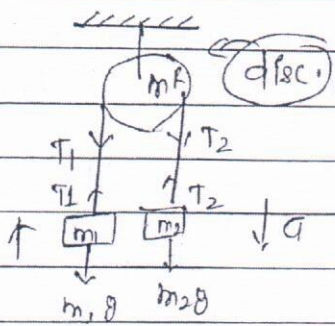 m R disc.
T1 T2
T1 T2
m1 m2 a
m1g m2g